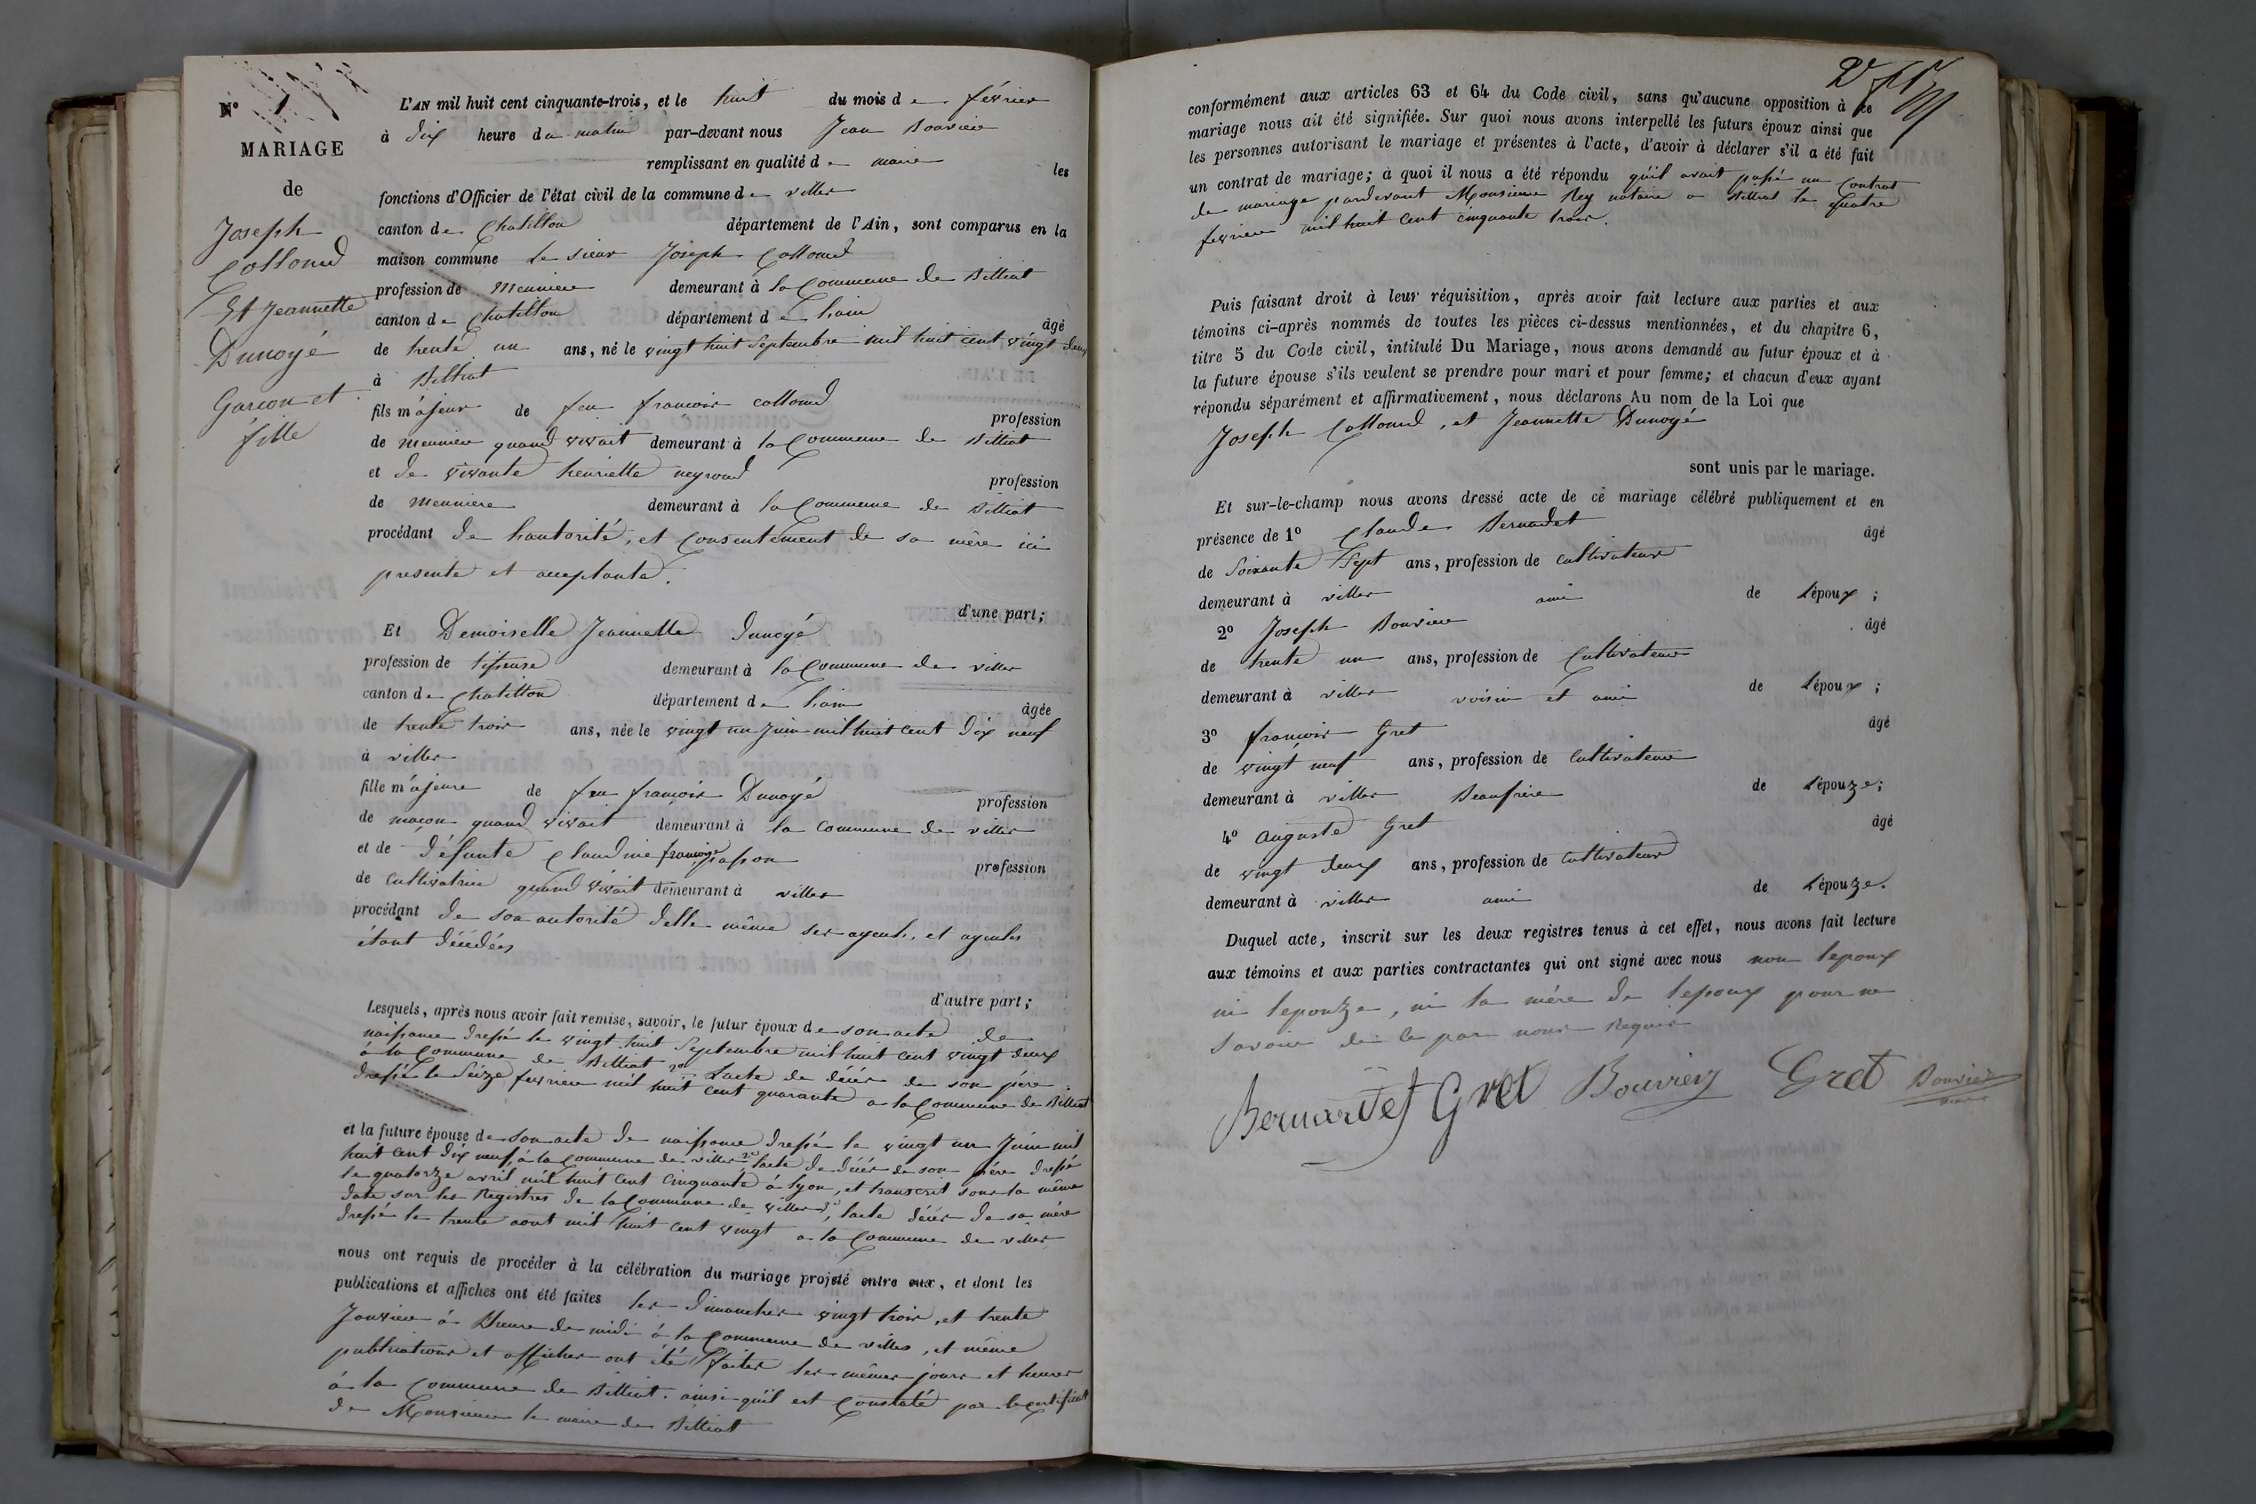 N° 1
MARIAGE
de
Joseph
Collond
Et Jeannette
Dunoyé
Garcon et
fille
L'AN mil huit cent cinquante-trois, et le huit du mois de février
à dix heure du matin par-devant nous Jean Bouvier
remplissant en qualité de maire les
fonctions d'Officier de l'état civil de la commune de villes
canton de Chatillon département de l'Ain, sont comparus en la
maison commune le sieur Joseph Collond
profession de meunier demeurant à la Commune de Billiat
canton de Chatillon département de lain âgé
de trente un ans, né le vingt huit Septembre mil huit cent vingt deux
à Billiat
fils majeur de feu francois collond profession
de meunier quand vivait demeurant à la Commune de Billiat
et de vivante henriette neyroud profession
de meuniere demeurant à la Commune de Billiat
procédant de lautorité, et Consentement de sa mère ici
presente et acceptante.
d'une part;
Et Demoiselle Jeannette Dunoyé
profession de tisseuse demeurant à la Commune de villes
canton de Chatillon département de lain âgée
de trente trois ans, née le vingt un Juin mil huit cent dix neuf
à villes
fille majeure de feu francois Dunoyé profession
de maçon quand vivait demeurant à la Commune de villes
et de défunte Claudine francoise passon profession
de Cultivatrice quand vivait demeurant à villes
procédant de son autorité delle même ses ayeuls, et ayeules
étant décédés
d'autre part;
Lesquels, après nous avoir fait remise, savoir, le futur époux de son acte de
naissance dressé le vingt huit Septembre mil huit cent vingt deux
à la Commune de Billiat 2° Lacte de décés de son père
dressé le Seize fevrier mil huit cent quarante a la Commune de Billiat
et la future épouse de son acte de naissance dressé le vingt un Juin mil
huit cent dix neuf, à la Commune de villes 2° lacte de décés de son père dressé
le quatorze avril mil huit cent cinquante à lyon, et transcrit sous la même
date sur les Registres de la Commune de villes, 3° lacte décés de sa mère
dressé le trente aout mil huit cent vingt a la Commune de villes
nous ont requis de procéder à la célébration du mariage projeté entre eux, et dont les
publications et affiches ont été faites les dimanches vingt trois, et trente
Janvier à Lheure de midi à la Commune de villes, et même
publications et affiches ont été faites les mêmes jours et heures
à la Commune de Billiat. ainsi quil est Constaté par le certificat
de Monsieur le maire de Billiat
conformément aux articles 63 et 64 du Code civil, sans qu'aucune opposition à ce
mariage nous ait été signifiée. Sur quoi nous avons interpellé les futurs époux ainsi que
les personnes autorisant le mariage et présentes à l'acte, d'avoir à déclarer s'il a été fait
un contrat de mariage; à quoi il nous a été répondu quil avait passé un Contrat
de mariage pardevant Monsieur Rey notaire a Billiat le quatre
fevrier mil huit cent cinquante trois.
Puis faisant droit à leur réquisition, après avoir fait lecture aux parties et aux
témoins ci-après nommés de toutes les pièces ci-dessus mentionnées, et du chapitre 6,
titre 5 du Code civil, intitulé Du Mariage, nous avons demandé au futur époux et à
la future épouse s'ils veulent se prendre pour mari et pour femme; et chacun d'eux ayant
répondu séparément et affirmativement, nous déclarons Au nom de la Loi que
Joseph Collond, et Jeannette Dunoyé
sont unis par le mariage.
Et sur-le-champ nous avons dressé acte de ce mariage célébré publiquement et en
présence de 1° Claude Bernadet âgé
de Soixante Sept ans, profession de Cultivateur
demeurant à villes ami de l'époux;
2° Joseph Bouvier âgé
de trente un ans, profession de Cultivateur
demeurant à villes voisin et ami de l'époux;
3° francois Gret âgé
de vingt neuf ans, profession de Cultivateur
demeurant à villes Beaufrère de l'épouze;
4° auguste Gret âgé
de vingt deux ans, profession de Cultivateur
demeurant à villes ami de l'épouze.
Duquel acte, inscrit sur les deux registres tenus à cet effet, nous avons fait lecture
aux témoins et aux parties contractantes qui ont signé avec nous non lepoux
ni lepouze, ni la mère de lepoux pour ne
Savoir de ce par nous Requis
Bernardet Gret Bouvier Gret Bouvier
maire